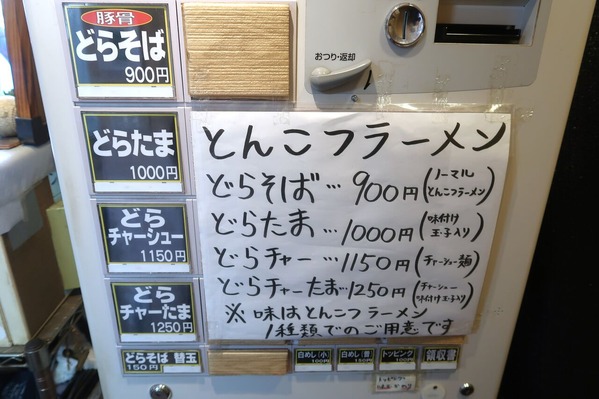 豚骨
どらそば
900円
おつり・返却
どらたま
1000円
どら
チャーシュー
1150円
どら
チャーたま
1250円
どらそば 替玉
150円
とんこつラーメン
どらそば…900円(ノーマル とんこつラーメン)
どらたま…1000円(味付け 玉子入り)
どらチャー…1150円(チャーシュー麺)
どらチャーたま…1250円(チャーシュー 味付け玉子入り)
※味はとんこつラーメン
1種類でのご用意です
白めし(小)
100円
白めし(普)
150円
トッピング
100円
領収書